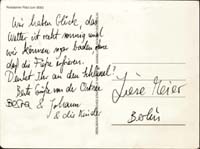 Wir haben Glück, das
Wetter ist recht sonnig und
wir können sogar baden, ohne
daß die Füße erfrieren.
Denkst Ihr an den Schlüssel?
Beste Grüße von der Ostsee
& Johann
& die Kinder
Liese Meier
Berlin